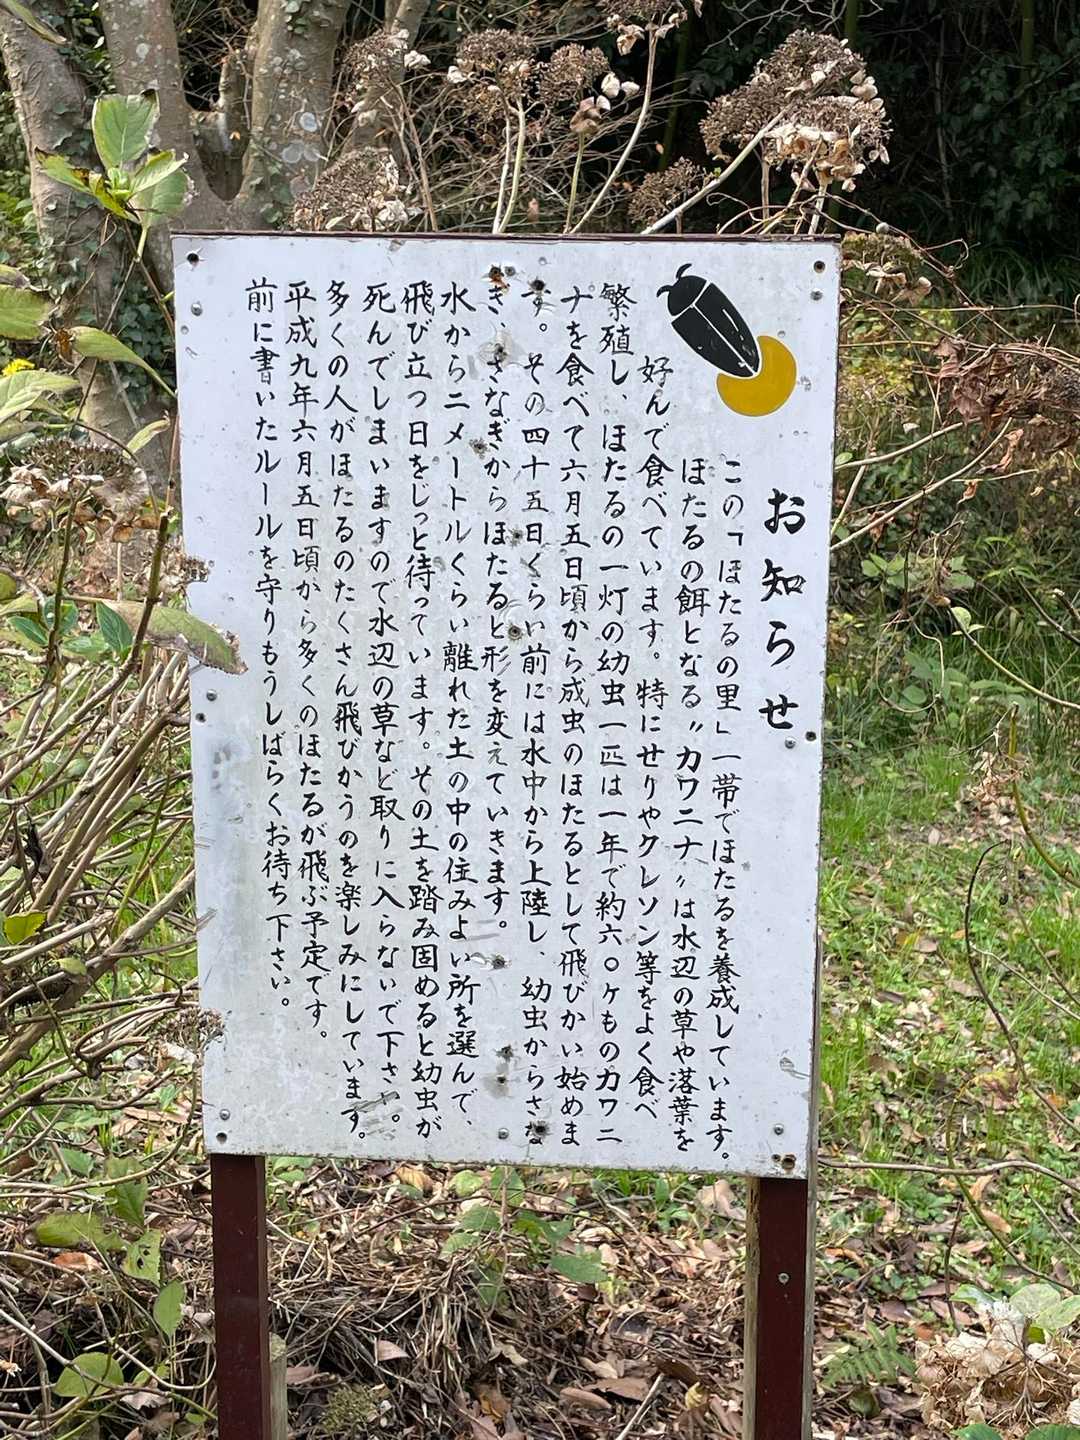 お知らせ
この「ほたるの里」一帯でほたるを養成しています。
ほたるの餌となる〝カワニナ〟は水辺の草や落葉を
好んで食べています。特にせりやクレソン等をよく食べ
繁殖し、ほたるの一灯の幼虫一匹は一年で約六〇ケものカワニ
ナを食べて六月五日頃から成虫のほたるとして飛びかい始めま
す。その四十五日くらい前には水中から上陸し、幼虫からさな
ぎ、さなぎからほたると形を変えていきます。
水から二メートルくらい離れた土の中の住みよい所を選んで、
飛び立つ日をじっと待っています。その土を踏み固めると幼虫が
死んでしまいますので水辺の草など取りに入らないで下さい。
多くの人がほたるのたくさん飛びかうのを楽しみにしています。
平成九年六月五日頃から多くのほたるが飛ぶ予定です。
前に書いたルールを守りもうしばらくお待ち下さい。